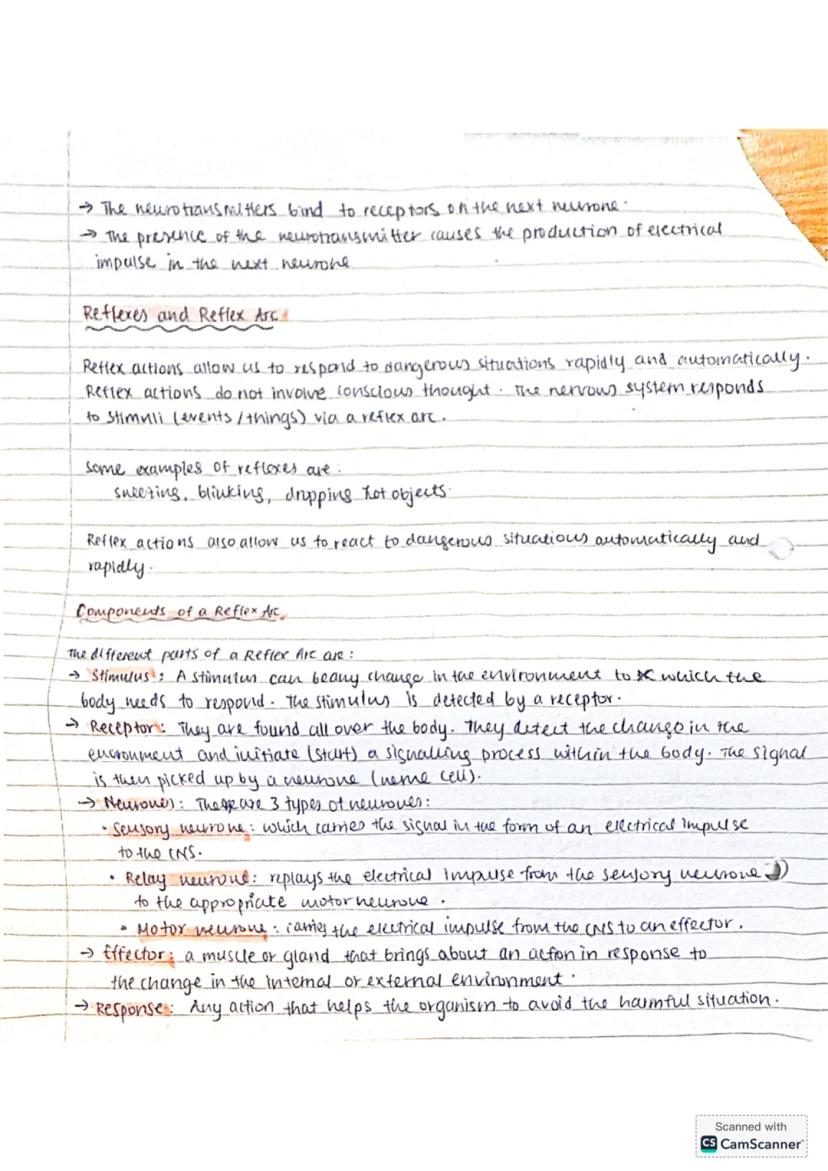 → The neurotransmitters bind to receptors on the next neurone.
→ The presence of the neurotransmitter causes the production of electrical
impulse in the next neurone
Reflexes and Reflex Arc
Reflex actions allow us to respond to dangerous situations rapidly and automatically.
Reflex actions do not involve conscious thought. The nervous system responds
to stimuli (events/things) via a reflex arc.
Some examples of reflexes are:
sneezing, blinking, dropping hot objects.
Reflex actions also allow us to react to dangerous situations automatically and
rapidly.
Components of a Reflex Arc
The different parts of a Reflex Arc are:
→ Stimulus: A stimulus can be any change in the environment to which the
body needs to respond. The stimulus is detected by a receptor.
→ Receptor: They are found all over the body. They detect the change in the
environment and initiate (start) a signalling process within the body. The signal
is then picked up by a neurone (nerve cell).
→ Neurones: There are 3 types of neurones:
• Sensory neurone: which carries the signal in the form of an electrical impulse
to the CNS.
• Relay neurone: replays the electrical impulse from the sensory neurone
to the appropriate motor neurone.
• Motor neurone: carries the electrical impulse from the CNS to an effector.
→ Effector: a muscle or gland that brings about an action in response to
the change in the internal or external environment.
→ Response: Any action that helps the organism to avoid the harmful situation.
Scanned with
CS CamScanner